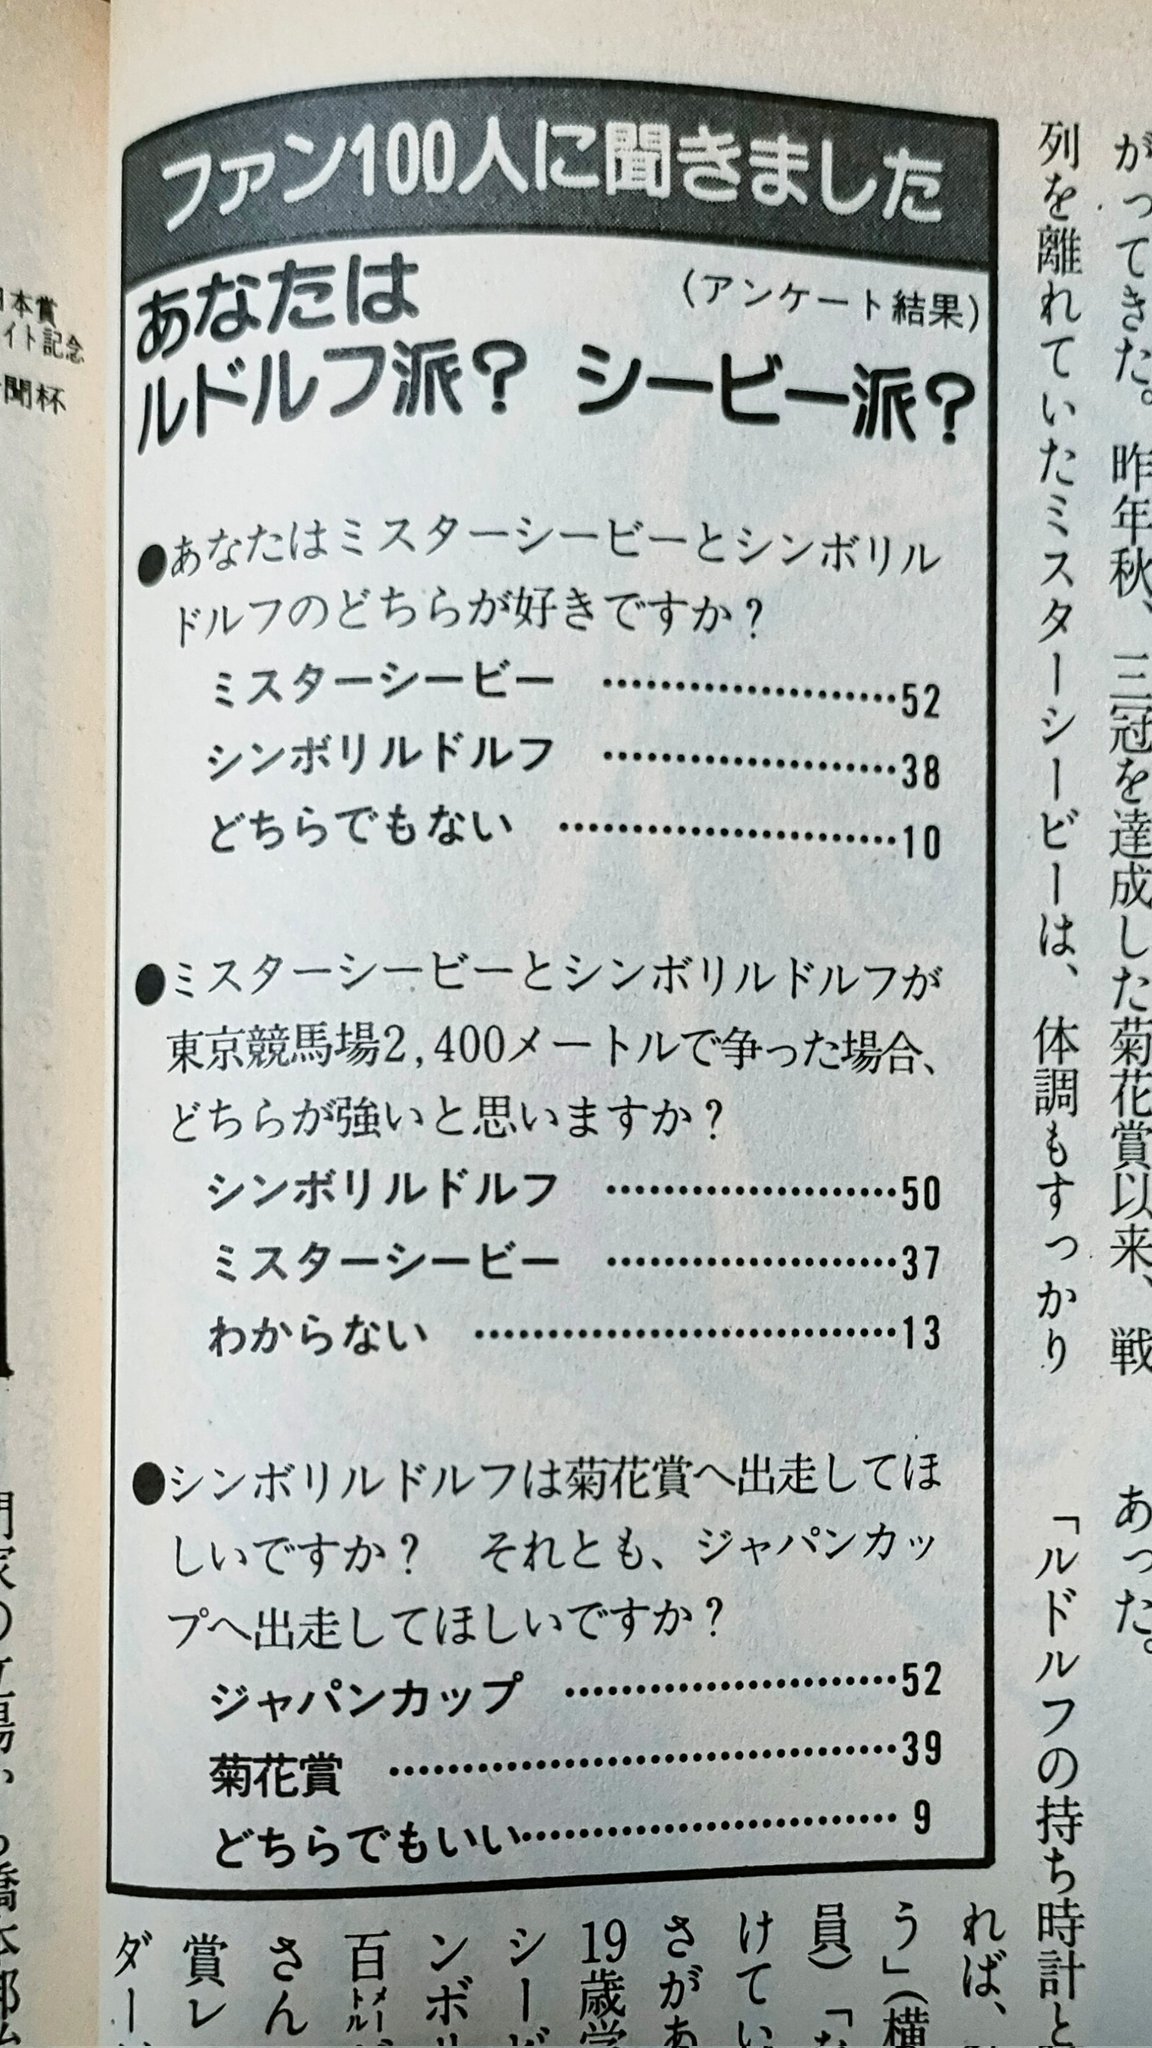 ファン100人に聞きました
あなたは
(アンケート結果)
ルドルフ派? シービー派?
●あなたはミスターシービーとシンボリル
ドルフのどちらが好きですか?
ミスターシービー ……………………52
シンボリルドルフ ……………………38
どちらでもない ……………………10
●ミスターシービーとシンボリルドルフが
東京競馬場2,400メートルで争った場合、
どちらが強いと思いますか?
シンボリルドルフ ……………………50
ミスターシービー ……………………37
わからない ……………………13
●シンボリルドルフは菊花賞へ出走してほ
しいですか? それとも、ジャパンカッ
プへ出走してほしいですか?
ジャパンカップ ……………………52
菊花賞 ……………………39
どちらでもいい……………………9
がってきた。昨年秋、三冠を達成した菊花賞以来、戦
列を離れていたミスターシービーは、体調もすっかり
あった。
「ルドルフの持ち時計と
れば、
う」(横
員)「な
けてい
さがあ
19歳学
シービ
ンボリ
百メートル
さん
賞レ
ダー
日本賞
イト記念
聞杯